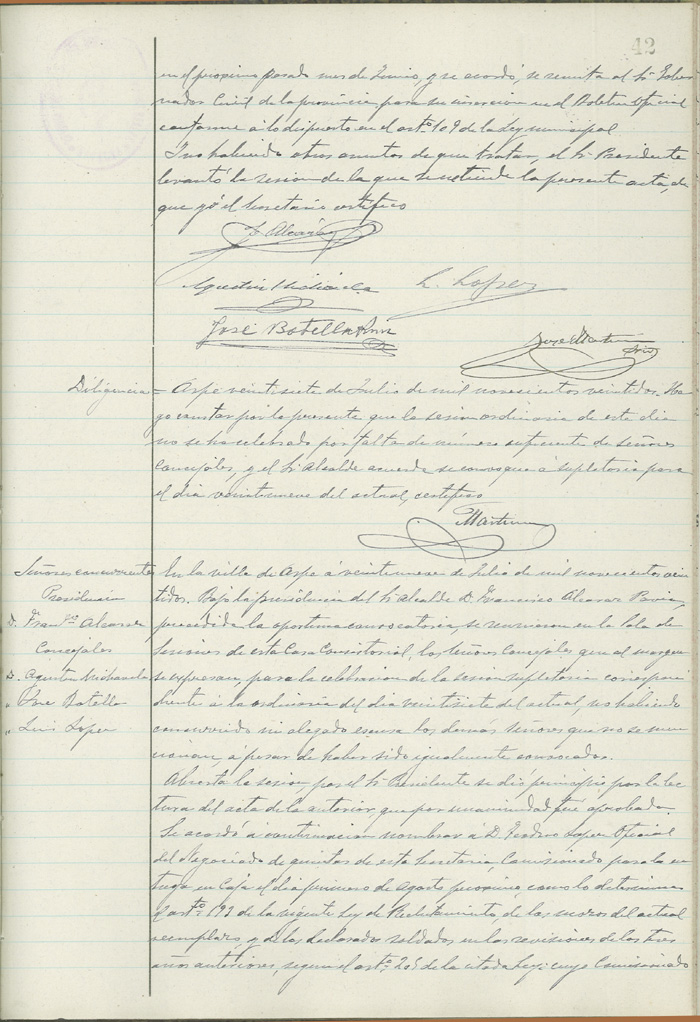 42
en el proximo pasado mes de Junio, y se acordó, se remita al Sr. Gober-
nador Civil de la provincia para su insercion en el Boletin Oficial
conforme á lo dispuesto en el artº 109 de la Ley municipal.
Y no habiendo otros asuntos de que tratar, el Sr. Presidente
levantó la sesion de la que se estiende la presente acta, de
que yo el Secretario certifico
F. Alcaraz
Agustin Mira L. Lopez
José Botella
José Martinez
Srio
Diligencia = Aspe veintisiete de Julio de mil novecientos veintidos. Ha-
go constar por la presente que la sesion ordinaria de este dia
no se ha celebrado por falta de numero suficiente de señores
Concejales, y el Sr. Alcalde acuerda se convoque á supletoria para
el dia veintinueve del actual, certifico
Martinez
Señores concurrentes
Presidencia
D. Franco Alcaraz
Concejales
D. Agustin
" José Botella
" Luis Lopez
En la villa de Aspe á veintinueve de Julio de mil novecientos vein-
tidos. Bajo la presidencia del Sr. Alcalde D. Francisco Alcaraz
precedida la oportuna convocatoria, se reunieron en la Sala de
Sesiones de esta Casa Consistorial, los señores Concejales que al margen
se expresan, para la celebracion de la sesion supletoria correspon-
diente á la ordinaria del dia veintisiete del actual, no habiendo
concurrido ni alegado escusa los demás señores que no se men-
cionan, á pesar de haber sido igualmente convocados.
Abierta la sesion, por el Sr. Presidente se dió principio por la lec-
tura del acta de la anterior, que por unanimidad fué aprobada.
Se acordó á continuacion nombrar á D. Lopez Oficial
del Negociado de quintas de esta Secretaria, Comisionado para la en-
trega en Caja el dia primero de Agosto proximo, como lo determina
el artº 193 de la vigente Ley de Reclutamiento, de los mozos del actual
reemplazo, y de los declarados soldados en las revisiones de los tres
años anteriores, segun el artº 205 de la citada Ley; cuyo Comisionado